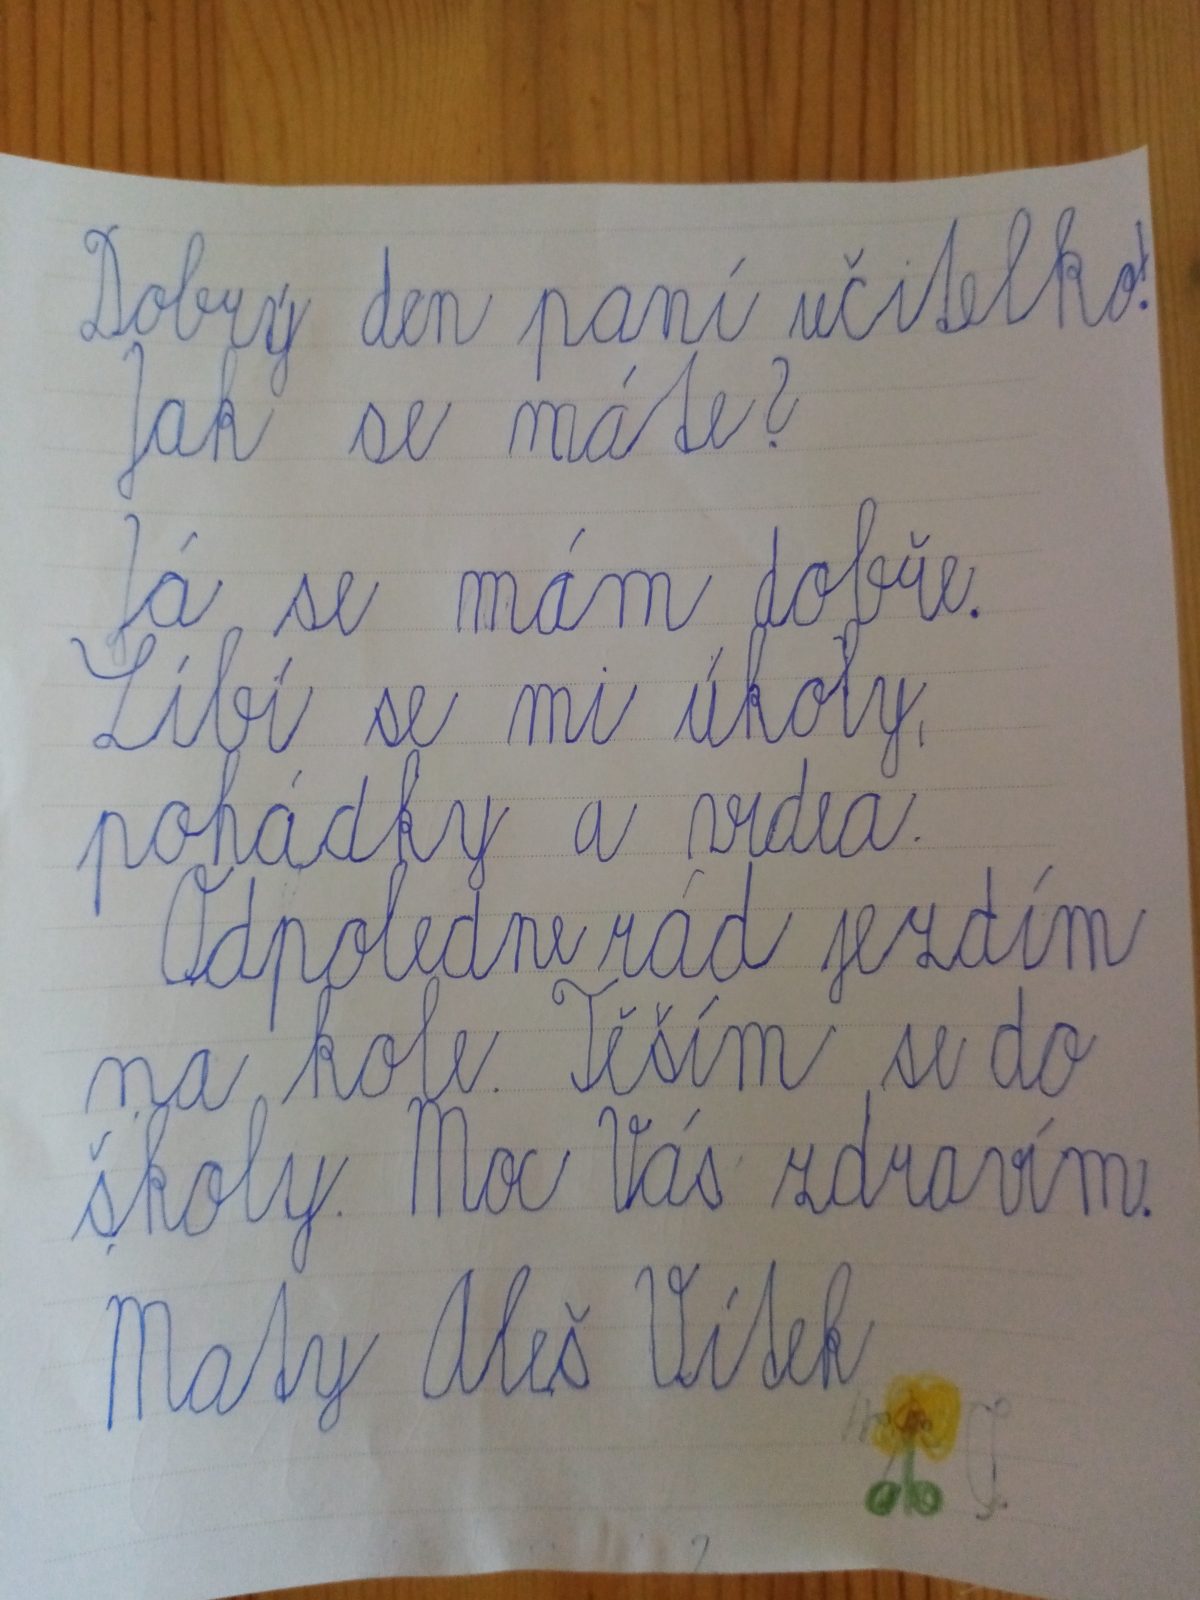 Dobrý den paní učitelko!
Jak se máte?
Já se mám dobře.
Líbí se mi úkoly,
pohádky a videa.
Odpoledne rád jezdím
na kole. Těším se do
školy. Moc Vás zdravím.
Maty Aleš Vítek